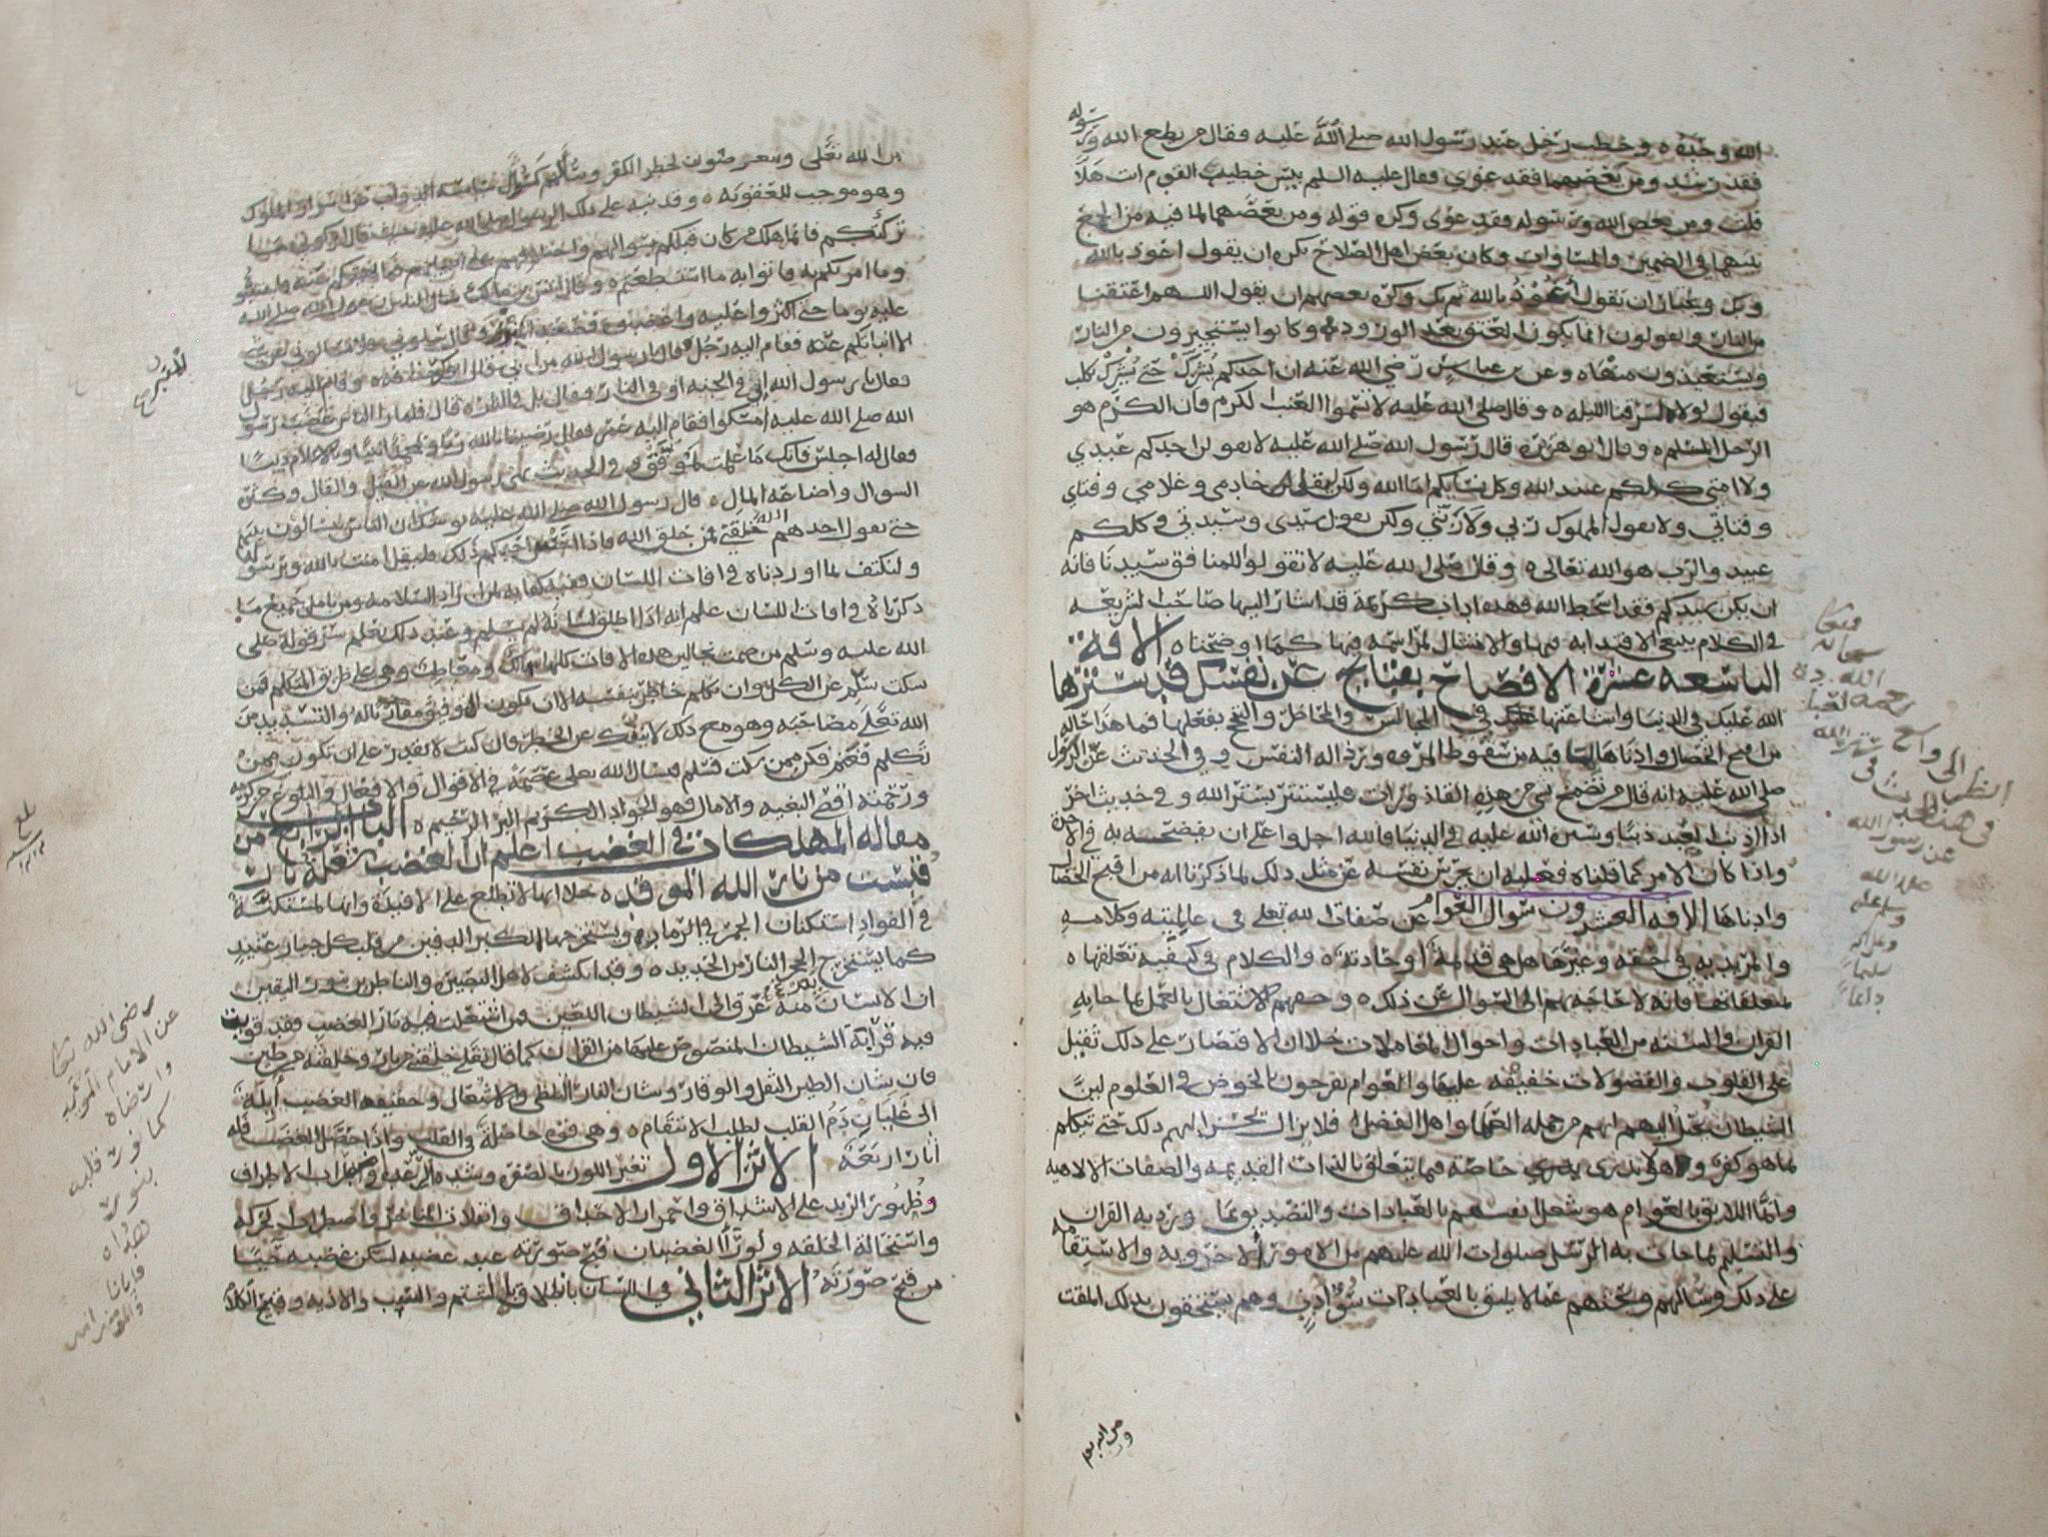 الله وحبه ه وخطب رجل عند رسول الله صلى الله عليه فقال من يطع الله ورسوله
فقد رشد ومن يعصهما فقد غوى فقال عليه السلم بيس خطيب القوم انت هلا
قلت ومن يعص الله ورسوله فقد غوى وكره قوله ومن يعصهما لما فيه من الجمع
بينهما في الضمير والمساواة وكان بعض اهل الصلاح يكره ان يقول اعوذ بالله
وبك وعبار ان يقول أعوذ بالله ثم بك وكره بعضهم ان يقول اللهم اعتقنا
من النار ويقولون انما يكون العتق بعد الورود وكانوا يستجيرون من النار
ويستعيذون منها ه وعن بن عباس رضي الله عنه ان احدكم يشرك حتى يشرك بكلب
فيقول لولاه لسرقنا الليلة ه وقال صلى الله عليه لا تسموا العنب الكرم فان الكرم هو
الرجل المسلم ه وقال ابو هريرة قال رسول الله صلى الله عليه لا يقولن احدكم عبدي
ولا امتي كلكم عبيد الله وكل نسايكم اما الله ولكن ليقل خادمي وغلامي وفتاي
وفتاتي ولا يقول المملوك ربي ولا ربتي ولكن يقول سيدي وسيدتي فكلكم
عبيد والرب هو الله تعالى ه وقال صلى الله عليه لا تقولوا للمنافق سيدنا فانه
ان يكن سيدكم فقد اسخط الله فهذه اداب كريمة قد اشار اليها صاحب الشريعة
في الكلام ينبغي الاقتدا به فيها والامتثال لمراسمه فيها كما اوضحناه الافة
التاسعه عشرة الافصاح بقبايح عن نفسك قد سترها
الله عليك في الدنيا واشاعتها عليك في المجالس والمحاضر والتبجح بفعلها فما هذا حاله
من اقبح الخصال وادناها لما فيه من سقوط المروه ورذاله النفس وفي الحديث عن الرسول
صلى الله عليه انه قال من تضمخ بشي من هذه القاذورات فليستتر بستر الله وفي حديث اخر
اذا اذنب العبد ذنبا وستره الله عليه في الدنيا فالله اجل واعلى ان يفضحه به في الاخرة
واذا كان الامر كما قلناه فعليه ان يحرس نفسه عن مثل ذلك لما ذكرنا انه من اقبح الخصال
وادناها الافه العشرون سوال العوام عن صفات الله تعلى في عالميته وكلامه
والمريديه في حقه وغيرها هل هي قديمة أو حادثة ه والكلام في كيفيه تعلقها ه
بمتعلقاتها فانه لا حاجة بهم الى السوال عن ذلك ه وحقهم الاشتغال بالعمل بما جا به
القران والسنه من العبادات واحوال المعاملات خلا ان الاقتصار على ذلك ثقيل
على القلوب والفضولات خفيفه عليها والعوام يفرحون بالخوض في العلوم لان
الشيطان يخيل اليهم انهم من جمله العلما واهل الفضل فلا يزال يحسن اليهم ذلك حتى تتكلم
بما هو كفر وهو لا يدري خاصة فيما يتعلق بالذات القديمه والصفات الالاهيه
وانما اللايق بالعوام هو شغل انفسهم بالعبادات والتصديق بما ورد به القران
والتسليم بما جات به الرسل صلوات الله عليهم من الامور الاخرويه والاستقامه
على ذلك وسوالهم وبحثهم عما لا يليق بالعبادات سؤ ادب وهم يستحقون بذلك المقت
سبحانه
الله
رحمه
انظر الى واسع ستر الله
في هذا الحديث
عن رسول الله
صلى الله
وسلم عليه
وعلى اله
سلاما
دايما
من الله تعلى
وهو موجب للعقوبه ه وقد نبه على ذلك الرسول صلى الله عليه حيث قال اتركوني ما
تركتكم فانما هلك من كان قبلكم بسوالهم واختلافهم على انبيايهم فما نهيتكم عنه فاجتنبوه
وما امرتكم به فاتوا به ما استطعتم ه وقال انس بن مالك سال الناس رسول الله صلى الله
عليه يوما حتى اكثروا عليه واغضبوه فصعد المنبر وقال سلوني ولا تسالوني عن شي
الا انباتكم عنه فقام اليه رجل فقال يا رسول الله من ابي قال ابوك حذافه وقام اليه رجل
فقال يا رسول الله أفي الجنه انا او في النار فقال بل في النار ه قال فلما را الناس غضب رسول
الله صلى الله عليه امسكوا فقام اليه عمر فقال رضينا بالله ربا وبمحمد نبيا وبالاسلام دينا
فقال له اجلس فانك ما علمت لموفق ه وفي الحديث نهى رسول الله عن القيل والقال وكثرة
السوال واضاعه المال ه قال رسول الله صلى الله عليه يوشك ان الناس يتسالون بينهم
حتى يقول احدهم الله خلق الخلق فمن خلق الله فاذا
ولنكتف بما اوردناه في افات اللسان ففيه كفايه لمن اراد السلامه ومن تامل جميع ما
ذكرناه في افات اللسان علم انه اذا اطلق لسانه لم يسلم وعند ذلك يعلم سر قوله صلى
الله عليه وسلم من صمت نجا لان هذه الافات كلها مهالك ومعاطب وهي على طريق المتكلم فمن
سكت سلم عن الكل وان تكلم خاطر بنفسه الا ان يكون التوفيق مقارنا له والتسديد من
الله تعلى مصاحبه وهو مع ذلك لا ينفك عن الخطر فان كنت لا تقدر على ان تكون ممن
تكلم فغنم فكن ممن سكت فسلم فنسال الله تعلى عصمة في الاقوال والافعال والبلوغ من كرمه
ورحمته اقصى البغيه والامال فهو الجواد الكريم البر الرحيم ه الباب الرابع من
مقاله المهلكات في الغضب اعلم ان الغضب شعلة نار
قبست من نار الله الموقده خلا انها لا تطلع على الافيدة وانها لمستكنة
في الفواد استكنان الجمر في الرماد ويستخرجها الكبر الدفين من قلب كل جبار عنيد
كما يستخرج الحجر النار من الحديد ه وقد انكشف لاهل البصيره والناظرين بنور اليقين
ان الانسان منه عرق الى الشيطان اللعين فمن اشتعلت فيه نار الغضب فقد قويت
فيه قرابة الشيطان المنصوص عليها من القران كما قال تعلى خلقتني من نار وخلقته من طين
فان شان الطين الثقل والوقار وشان النار التلظي والاشتعال وحقيقه الغضب آيلة
الى غليان دم القلب لطلب الانتقام ه وهي قوه حاصلة في القلب واذا حصل الغضب فله
آثار اربعة الاثر الاول تغير اللون بالصفره وشده الرعده واضطراب الاطراف
وظهور الزبد على الاشداق واحمرار الاحداق وانقلاب المناخر واضطراب الحركه
واستحالة الخلقه ولو رأا الغضبان قبح صورته عند غضبه لسكن غضبه حيا
من قبح صورته الاثر الثاني في اللسان بانطلاقه بالشتم والسب والاذيه وقبح الكلام
بلغ
رضي الله تعالى
عن الامام المويد
وارضاه
كما نور قلبه
بنور
هداه
وايانا
والمومنين امين